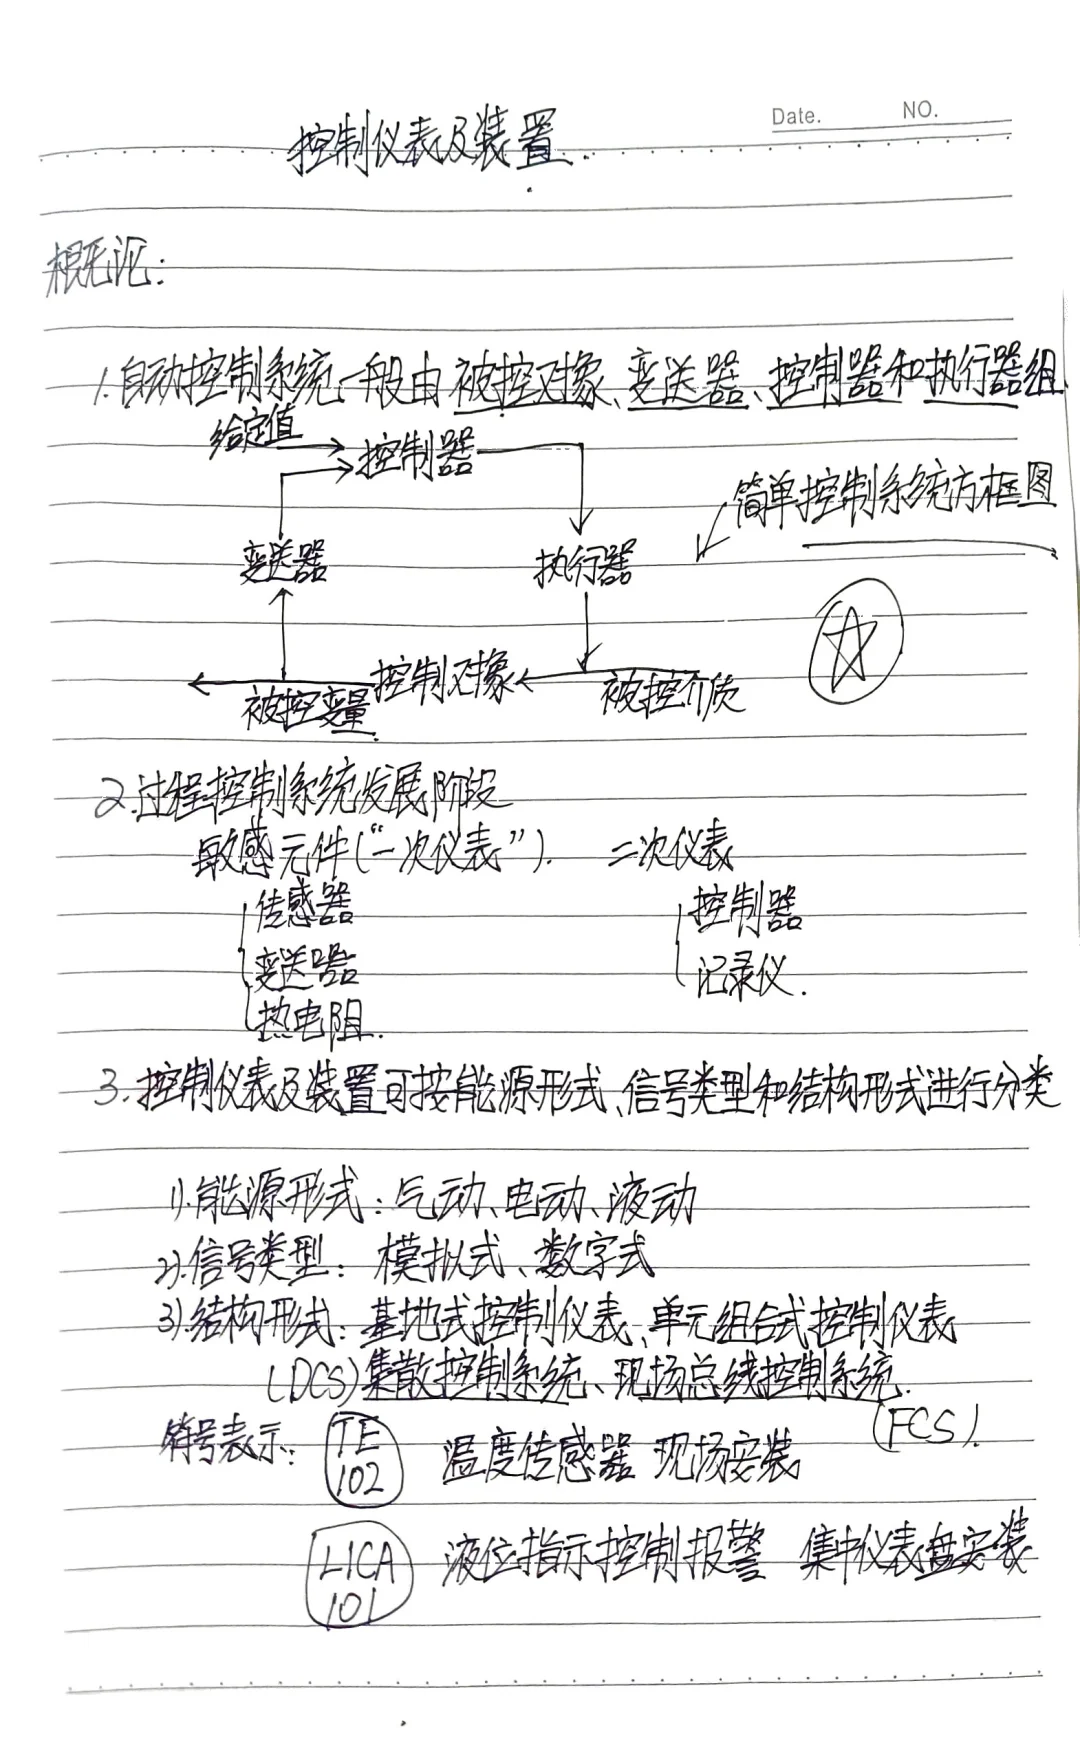 Date. NO.
控制仪表及装置.
概论:
1.自动控制系统一般由被控对象、变送器、控制器和执行器组
给定值
控制器
简单控制系统方框图
变送器 执行器
控制对象
被控变量 被控介质
2.过程控制系统发展阶段
敏感元件(“一次仪表”). 二次仪表
传感器 控制器
变送器 记录仪.
热电阻.
3.控制仪表及装置可按能源形式、信号类型和结构形式进行分类
1).能源形式:气动、电动、液动
2).信号类型:模拟式、数字式
3).结构形式:基地式控制仪表、单元组合式控制仪表
(DCS)集散控制系统、现场总线控制系统.
(FCS).
符号表示: TE 102 温度传感器 现场安装
LICA 101 液位指示控制报警 集中仪表盘安装